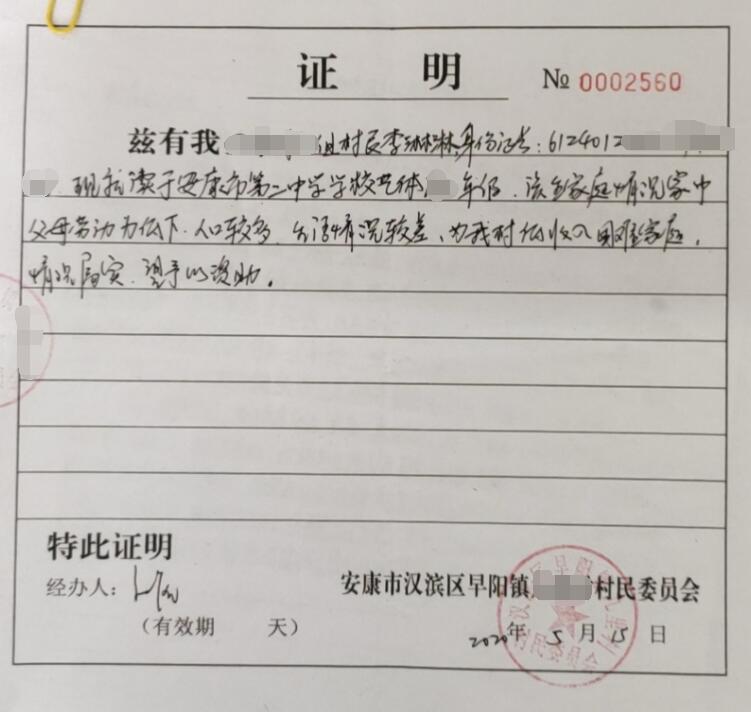 证 明 № 0002560
兹有我 组村民李琳琳身份证号:6124012
现就读于安康市第二中学学校艺体 年级,该生家庭情况家中
父母劳动力低下、人口较多、生活情况较差、为我村低收入困难家庭,
情况属实,望予以资助。
特此证明
经办人:
安康市汉滨区早阳镇 村民委员会
(有效期 天)
2020年5月15日
汉滨区早阳
村民委员会